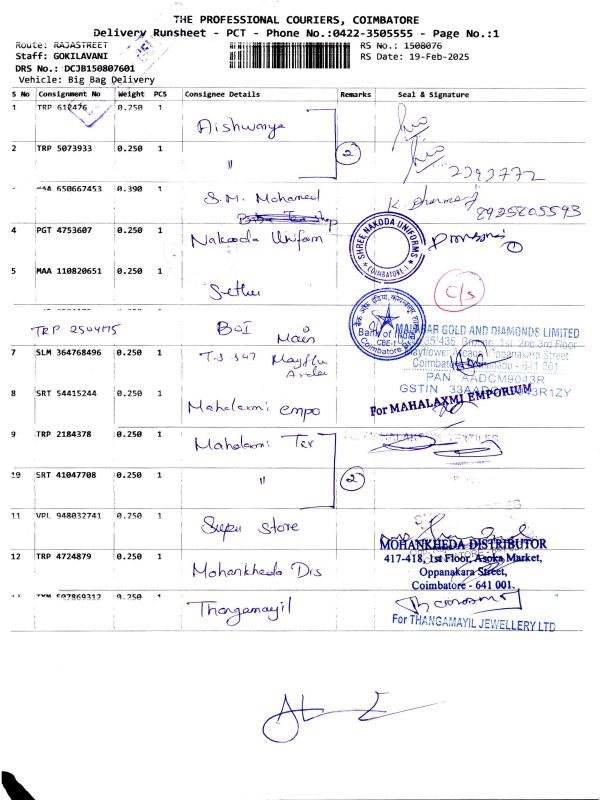 THE PROFESSIONAL COURIERS, COIMBATORE
Delivery Runsheet - PCT - Phone No.:0422-3505555 - Page No.:1
Route: RAJASTREET
RS No.: 1508076
Staff: GOKILAVANI
RS Date: 19-Feb-2025
DRS No.: DCJB150807601
Vehicle: Big Bag Delivery
S No Consignment No Weight PCS Consignee Details Remarks Seal & Signature
1 TRP 612476 0.250 1 Aishwarya
2 TRP 5073933 0.250 1 " 2
2393772
MAA 650667453 0.390 1 S.M. Mohamed
8925805593
4 PGT 4753607 0.250 1 Nakooda Uniform
SHREE NAKODA UNIFORMS
COIMBATORE-1
1
5 MAA 110820651 0.250 1 Sethu
C/s
TRP 2544175 BOI Main
Bank of India
CBE-1
Coimbatore
7 SLM 364768496 0.250 1 T.S 347 Mayflr
MALABAR GOLD AND DIAMONDS LIMITED
Oppanakara Street
641 001
PAN AADCM9043R
GSTIN
8 SRT 54415244 0.250 1 Mahalaxmi empo
For MAHALAXMI EMPORIUM
9 TRP 2184378 0.250 1 Mahalaxmi Tex
10 SRT 41047708 0.250 1 " 2
11 VPL 948032741 0.250 1 Super Store
12 TRP 4724879 0.250 1 Mohankheda Dis
MOHANKHEDA DISTRIBUTOR
417-418, 1st Floor, Asoka Market,
Oppanakara Street,
Coimbatore - 641 001.
0.250 1 Thangamayil
For THANGAMAYIL JEWELLERY LTD